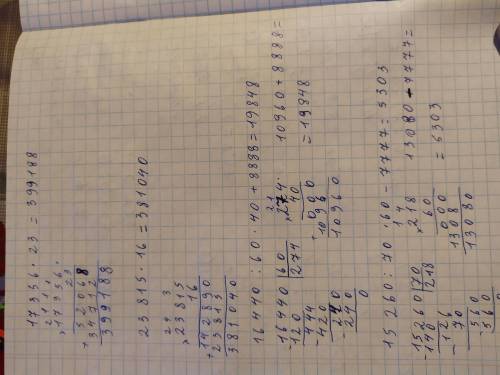 17356 · 23 = 399188
2 1 1 1
× 17356
23
+ 52068
34712
399188
23815 · 16 = 381040
2 4 3
× 23815
16
+ 142890
23815
381040
16440 : 60 · 40 + 8888 = 19848
- 16440 | 60
120 | 274
- 444
420
- 240
240
0
2 1
× 274
40
+ 000
1096
10960
10960 + 8888 =
= 19848
15260 : 70 · 60 - 7777 = 5303
- 15260 | 70
140 | 218
- 126
70
- 560
560
1 4
× 218
60
+ 000
1308
13080
13080 - 7777 =
= 5303